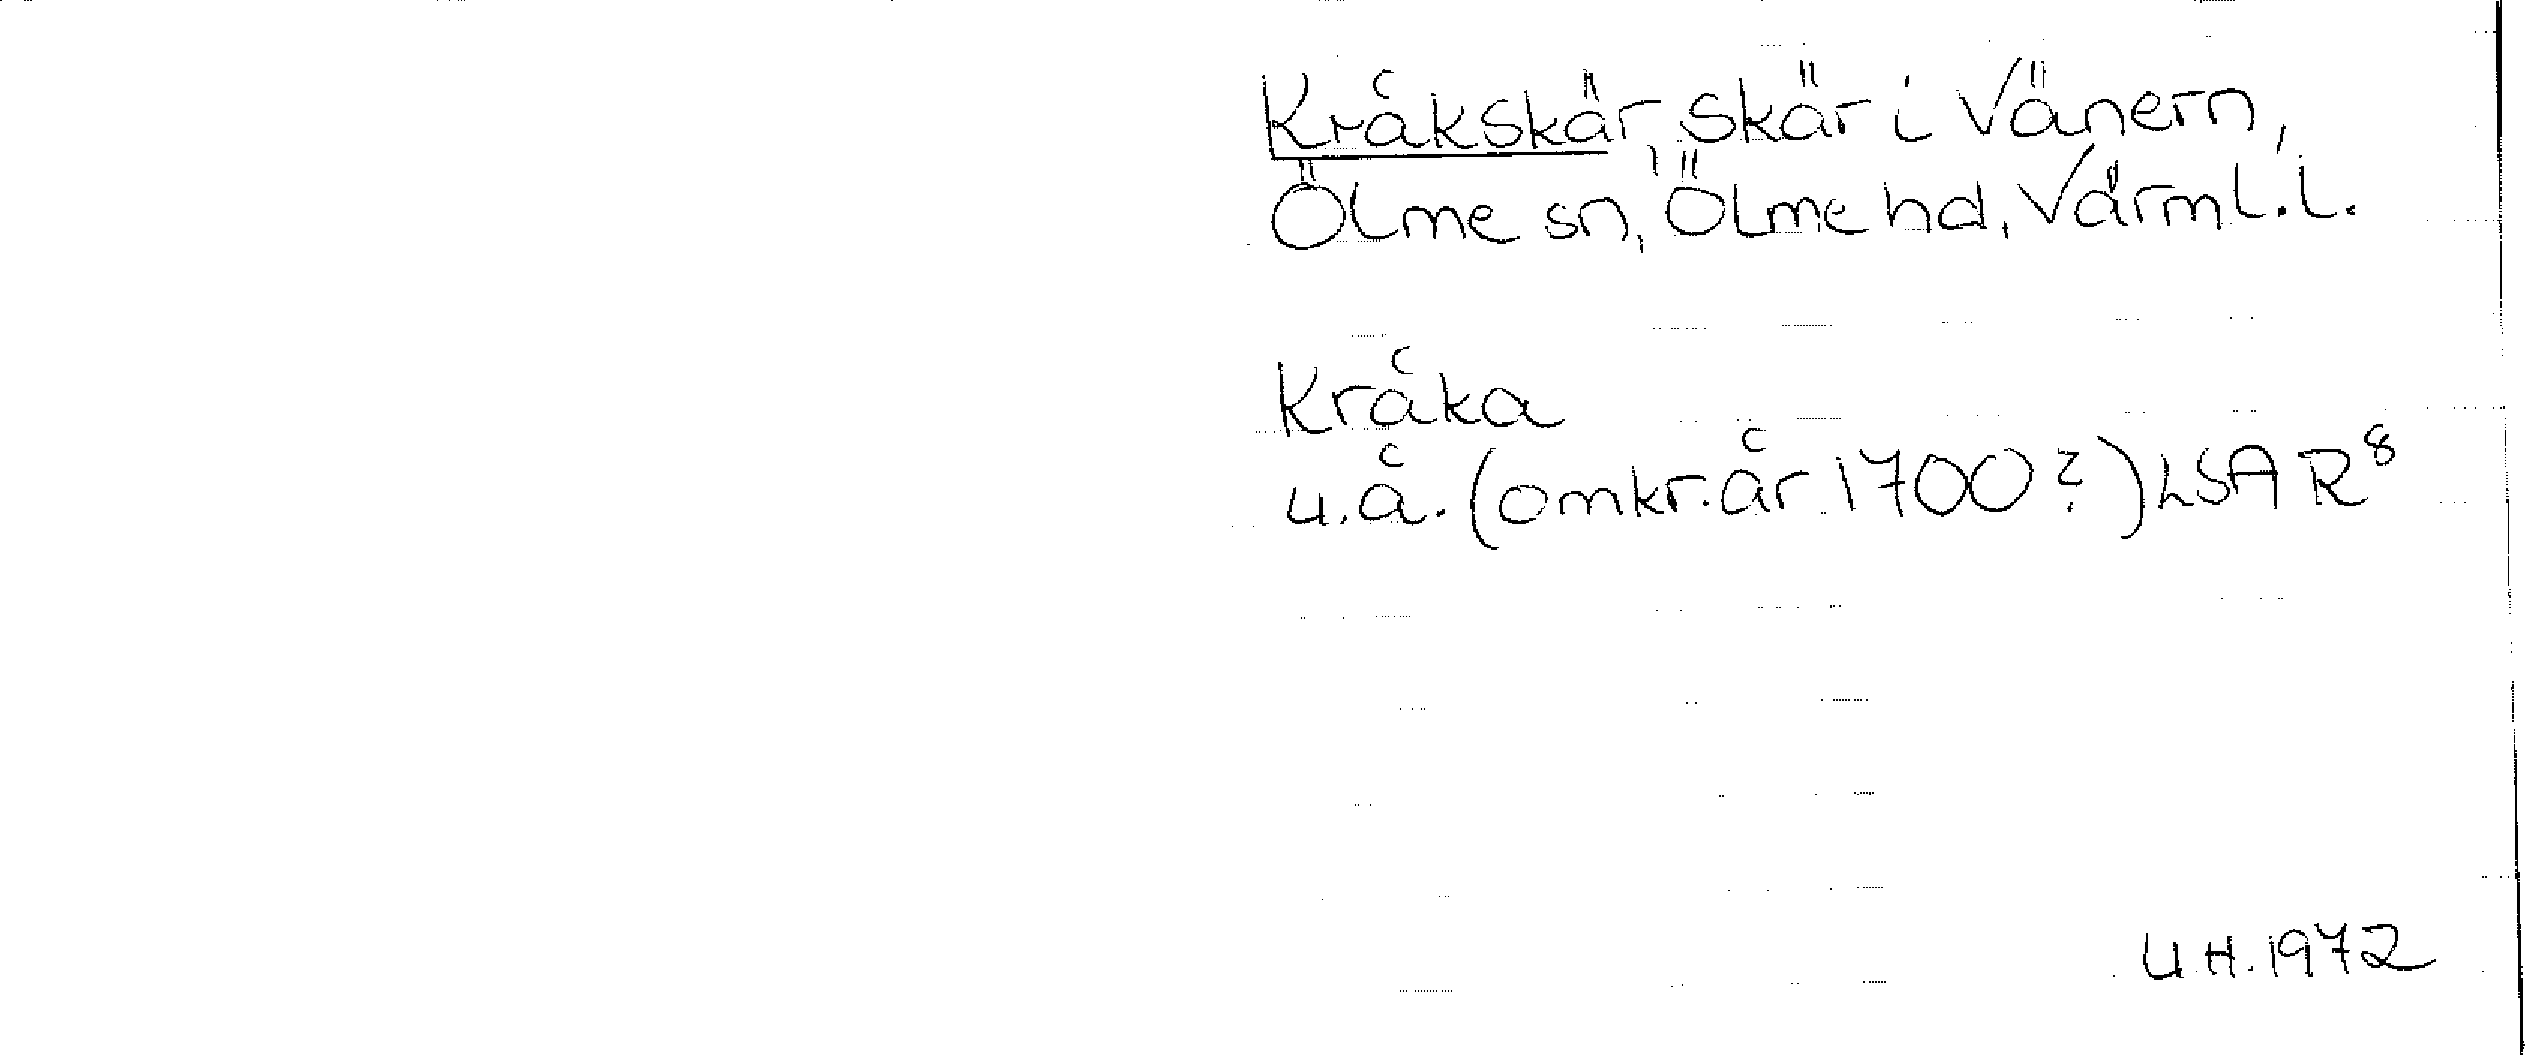 Kråkskär, skär i Vänern,
Ölme sn, Ölme hd, Värml.l.
Kråka
u.å. (omkr. år 1700?) LSA R⁸
U H. 1972